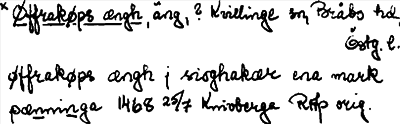 × Øffrakøps ængh, äng, ? Kvillinge sn, Bråbo hd,
Östg. l.
øffrakøps ængh j sioghakær ena mark
pænninga 1468 25/7 Knivberga RAp orig.